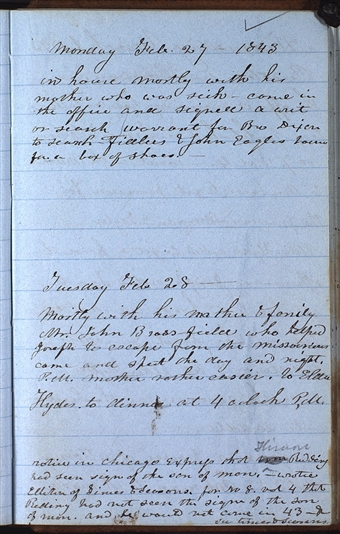 Monday Feb. 27 - 1843
in house mostly with his
mother who was sick - came in
the office and signed a writ
or search warrant for Bro Dixon
to search Fidlers & John Eagles house
for a box of shoes. —
Tuesday Feb 28 —
Mostly with his mother & family
Mr. John Brassfield who helped
Joseph to escape from the missourians
came and spent the day and night.
P.M. mother rather easier. To Elder
Hydes. to dinner at 4 o clock P.M.
Hiram
notice in Chicago Express that Redding
had seen sign of the son of man, - wrote
Editor of Times & Seasons. for No 8. vol 4 that
Redding had not seen the sign of the son
of man. and he would not come in 43 -
in times & seasons.